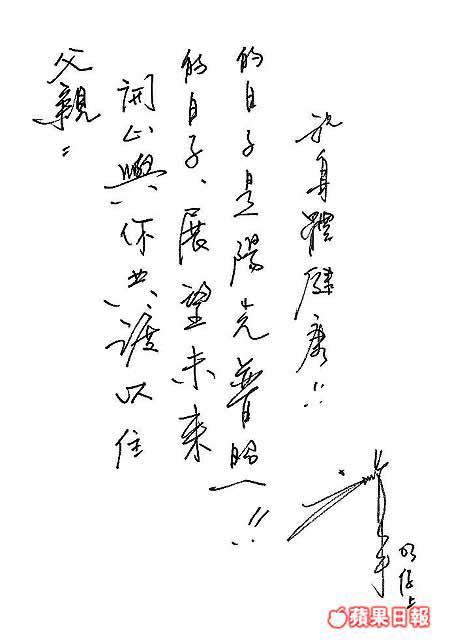 父親：
開心與你共渡以住
的日子、展望未來
的日子是陽光普照!!
祝身體健康!!
蘋果日報